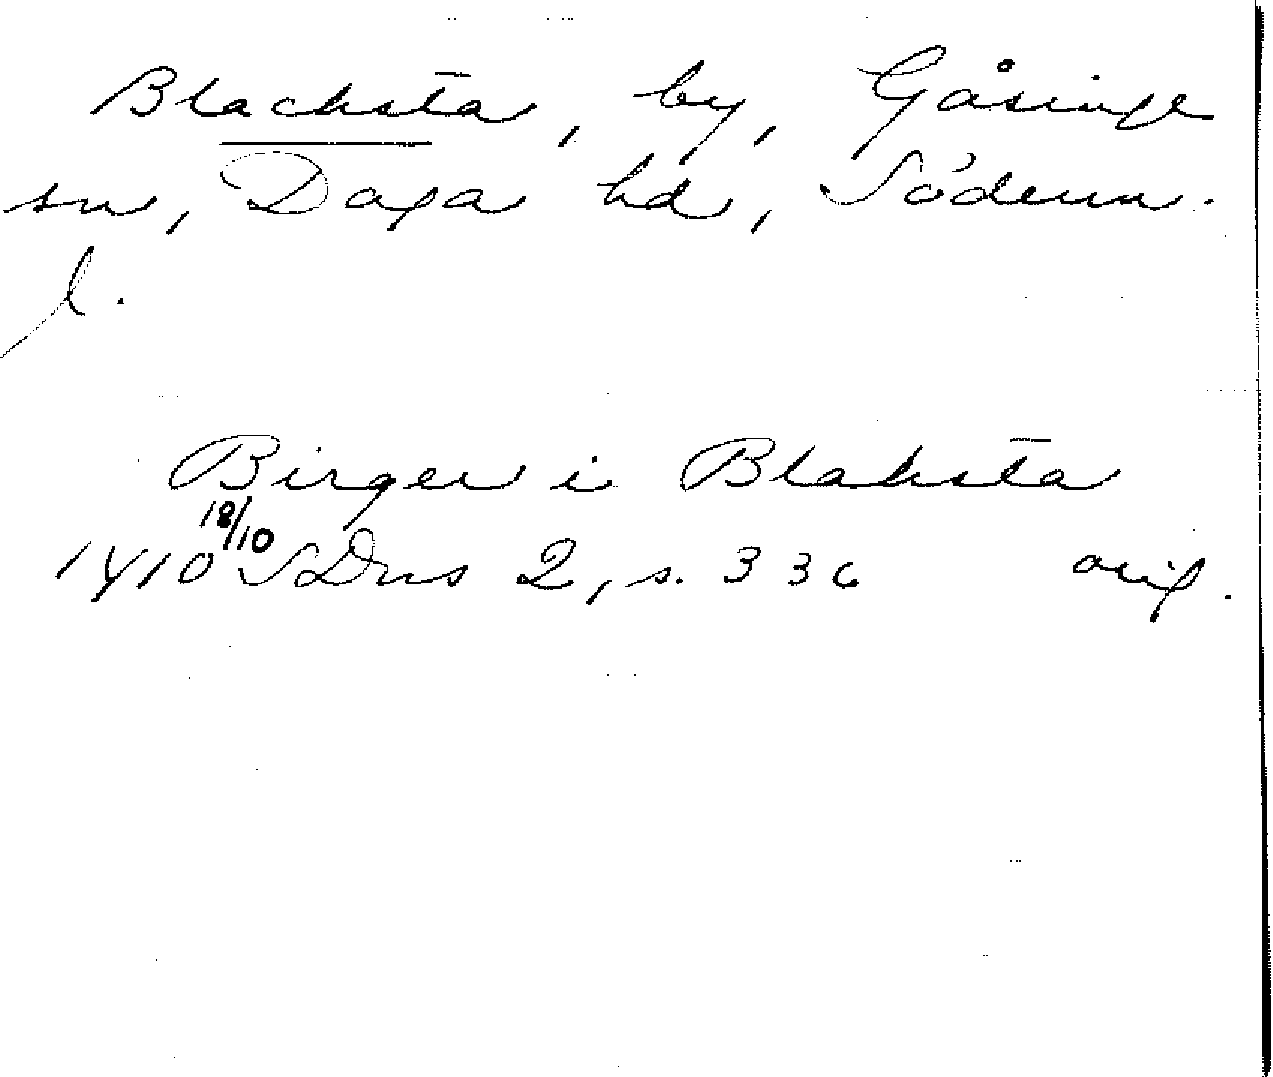 Blacksta, by, Gåsinge
sn, Daga hd, Söderm.
l.
Birger i Blaksta
18/10
1410 SDns 2, s. 336 orig.